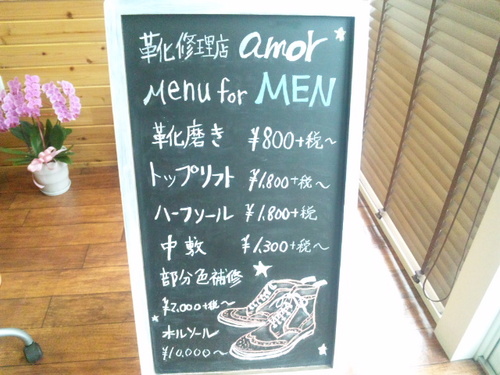 靴修理店 amor
Menu for MEN
靴磨き ¥800+税〜
トップリフト ¥1.800+税〜
ハーフソール ¥1.800+税
中敷 ¥1.300+税〜
部分色補修
¥2.000+税〜
オルソール
¥10.000〜